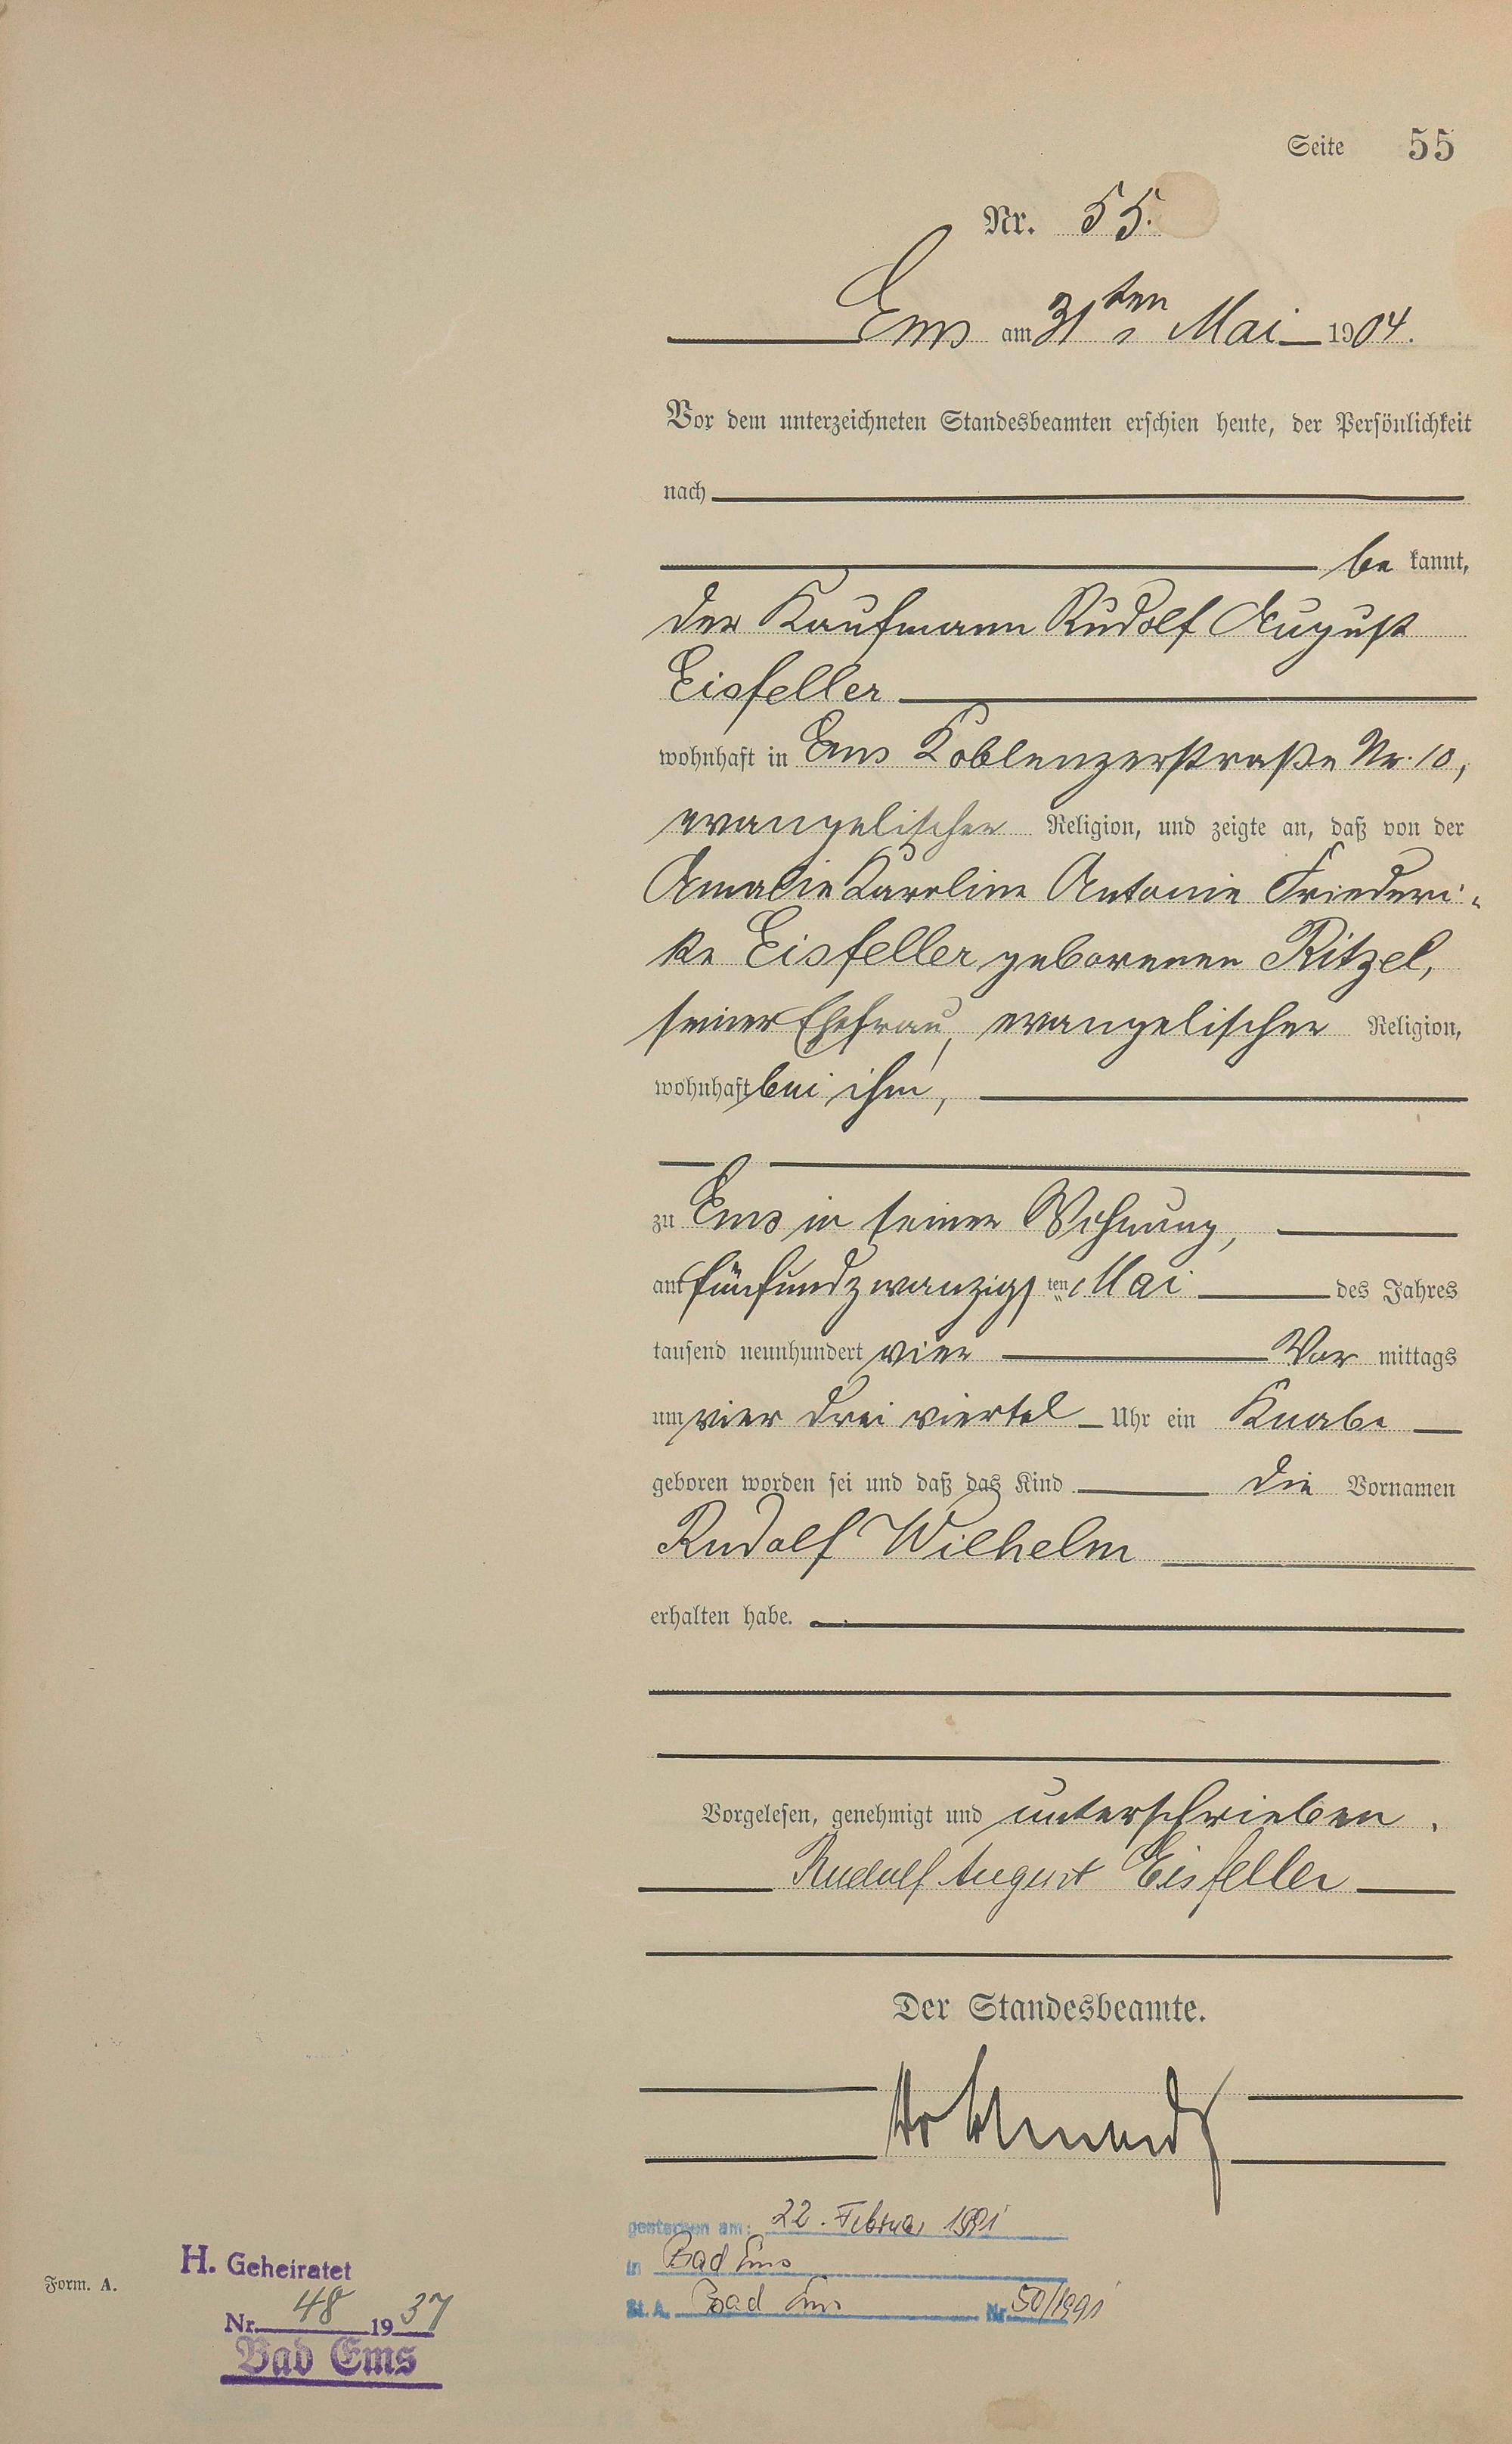 Seite 55
Nr. 55.
Ems am 31ten Mai 1904.
Vor dem unterzeichneten Standesbeamten erschien heute, der Persönlichkeit
nach
be kannt,
der Kaufmann Rudolf August
Eisfeller
wohnhaft in Ems Koblenzerstraße Nr. 10,
evangelischer Religion, und zeigte an, daß von der
Amalie Karoline Antonie Friederi-
ke Eisfeller geborenen Ritzel,
seiner Ehefrau, evangelischer Religion,
wohnhaft bei ihm,
zu Ems in seiner Wohnung,
am fünfundzwanzigsten Mai des Jahres
tausend neunhundert vier Vor mittags
um vier drei viertel Uhr ein Knabe
geboren worden sei und daß das Kind die Vornamen
Rudolf Wilhelm
erhalten habe.
Vorgelesen, genehmigt und unterschrieben.
Rudolf August Eisfeller
Der Standesbeamte.
gestorben am: 22. Februar 1991
in Bad Ems
St. A. Bad Ems Nr. 50/1991
H. Geheiratet
Nr. 48 1937
Bad Ems
Form. A.